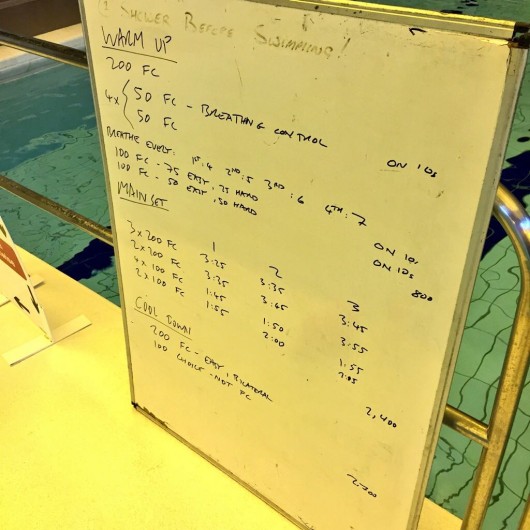 SHOWER BEFORE SWIMMING!
WARM UP
200 FC
4x { 50 FC - BREATHING CONTROL
50 FC ON 10s
BREATHE EVERY: 1ST: 4 2ND: 5 3RD: 6 4TH: 7
100 FC - 75 EASY, 25 HARD ON 10s
100 FC - 50 EASY, 50 HARD ON 10s
800
MAIN SET
1 2 3
3 x 200 FC 3:25 3:35 3:45
2 x 200 FC 3:35 3:45 3:55
4 x 100 FC 1:45 1:50 1:55
2 x 100 FC 1:55 2:00 2:05
2,400
COOL DOWN
200 FC - EASY, BILATERAL
100 CHOICE - NOT FC
2700